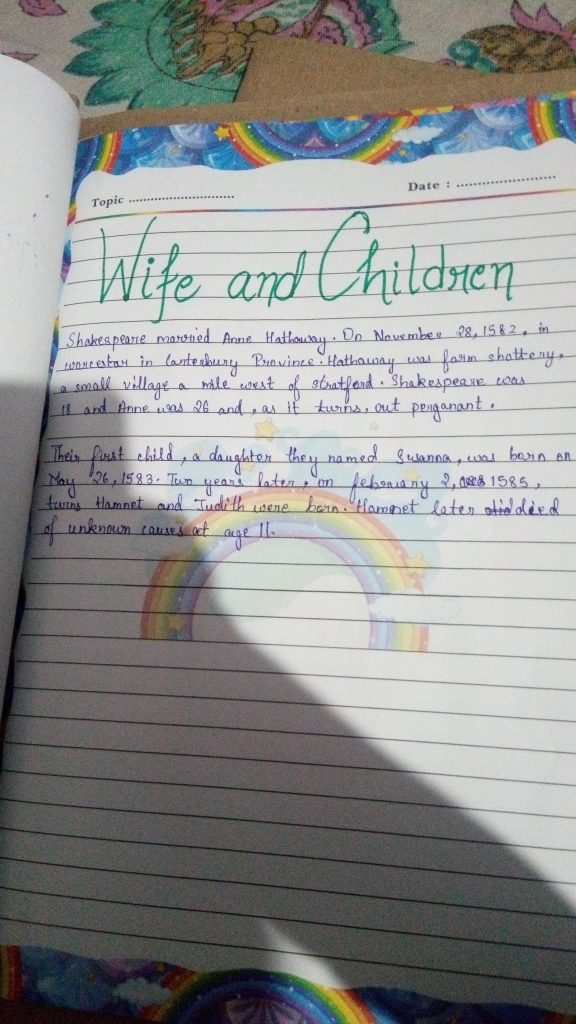 Topic ............................
Date : ..........................
Wife and Children
Shakespeare married Anne Hathaway. On November 28, 1582, in
worcestar in Canterbury Province. Hathaway was form shottery,
a small village a mile west of stratford. Shakespeare was
18 and Anne was 26 and, as it turns, out penganant.
Their first child, a daughter they named Susanna, was born on
May 26, 1583. Two years later, on february 2, 1585,
twins Hamnet and Judith were born. Hamnet later died
of unknown causes at age 11.